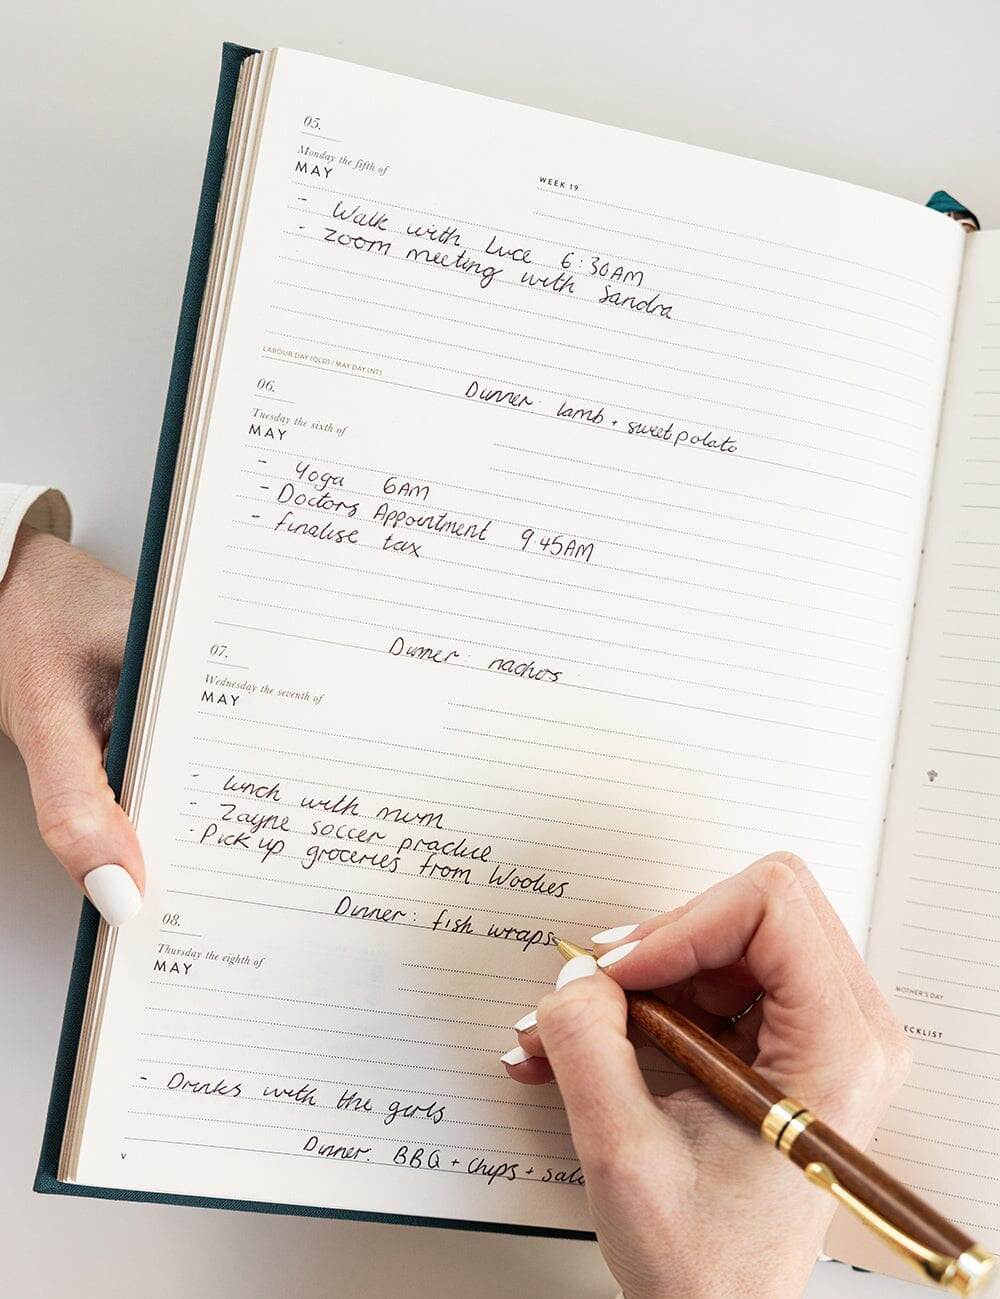 05.
Monday the fifth of
MAY
WEEK 19
- Walk with Luce 6:30AM
- Zoom meeting with Sandra
LABOUR DAY (QLD) / MAY DAY (NT)
Dinner: lamb + sweet potato
06.
Tuesday the sixth of
MAY
- Yoga 6AM
- Doctors Appointment 9.45AM
- finalise tax
Dinner: nachos
07.
Wednesday the seventh of
MAY
- lunch with mum
- Zayne soccer practice
- Pick up groceries from Woolies
Dinner: fish wraps
08.
Thursday the eighth of
MAY
- Drinks with the girls
Dinner: BBQ + chips + sala
V
MOTHER'S DAY
ECKLIST